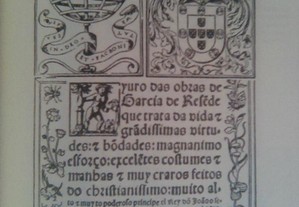 Lyuro das obras de
Garcia de Resēde
que trata da vida ⁊
grādissimas virtu-
des: ⁊ bōdades: magnanimo
esforço: excelētes costumes ⁊
manhas ⁊ muy craros feitos
do christianissimo: muito al-
to ⁊ muyto poderoso principe el rey dō João